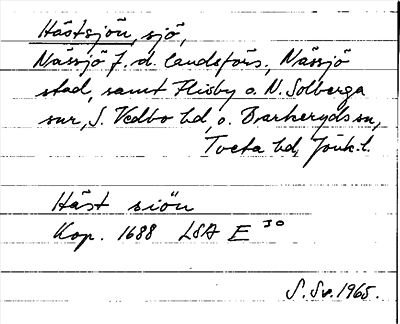 Hästsjön, sjö,
Nässjö f.d. landsförs., Nässjö
stad, samt Flisby o. N. Solberga
snr, S. Vedbo hd, o. Barkeryds sn,
Tveta hd, Jönk. l.
Häst siön
Kop. 1688 LSA E 30
S. Sv. 1965.